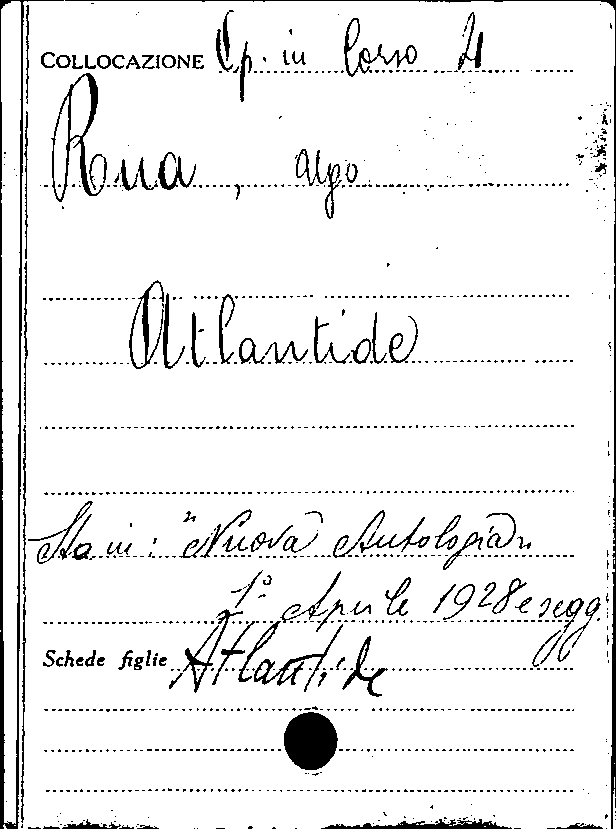 COLLOCAZIONE Op. in Corso 21
Rua, Algo
Atlantide
Sta in: "Nuova Antologia"
1º Aprile 1928 e segg.
Schede figlie Atlantide